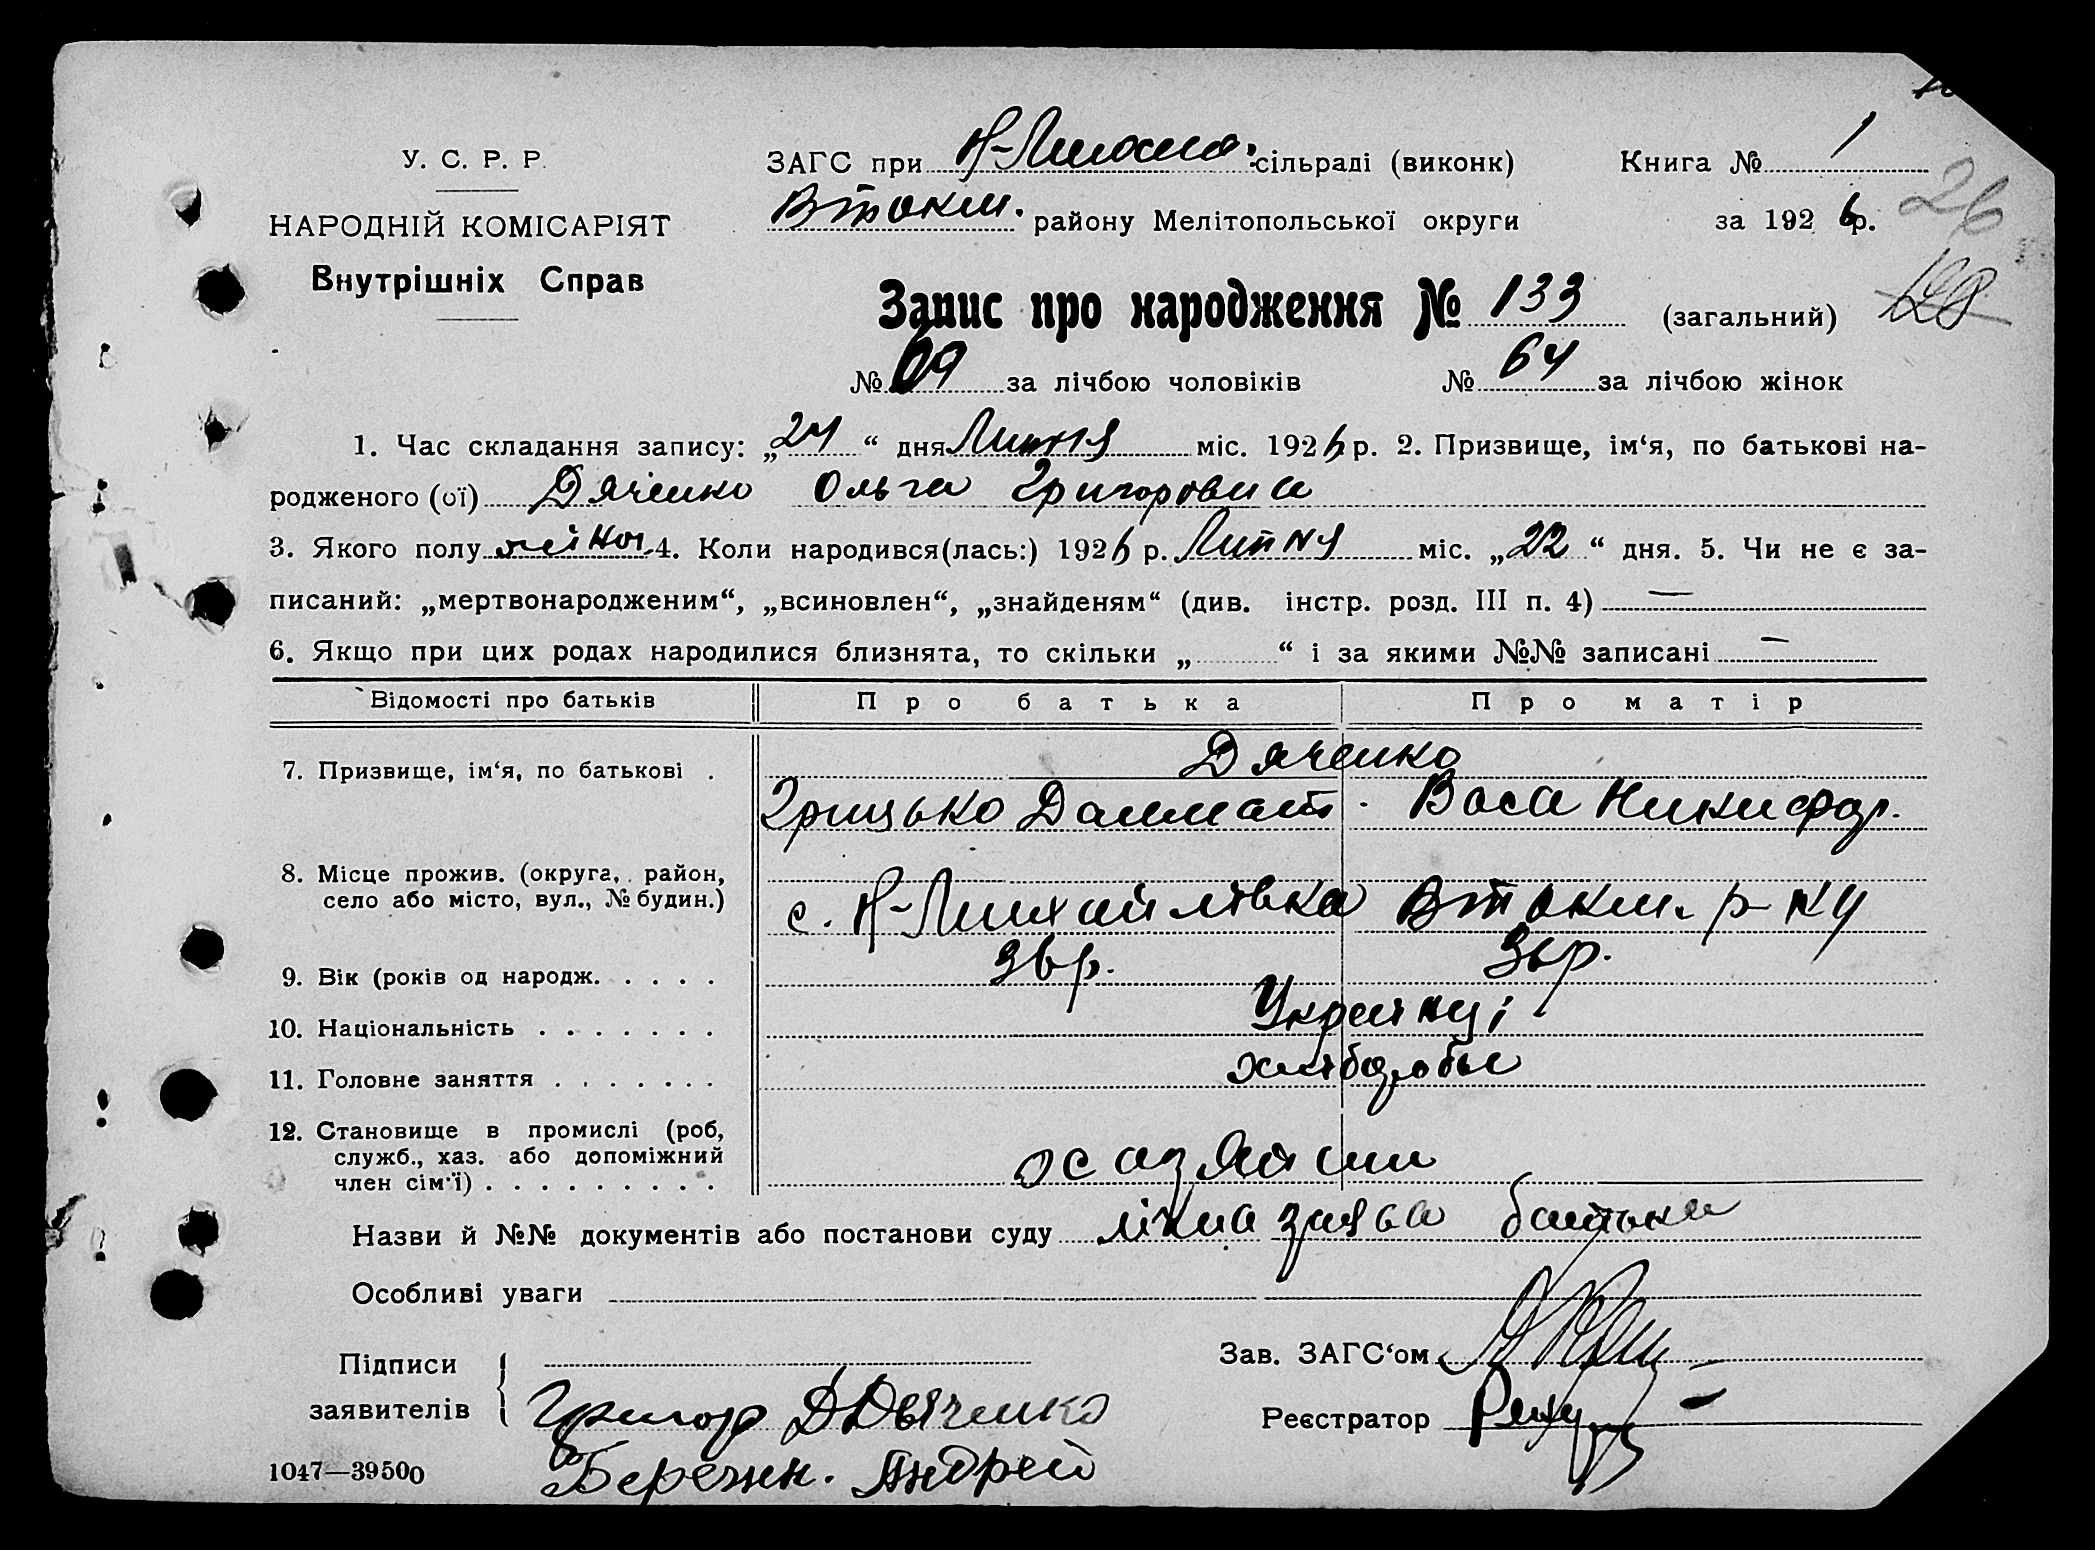 У. С. Р. Р.
НАРОДНІЙ КОМІСАРІЯТ
Внутрішніх Справ
ЗАГС при Н-Михайл. сільраді (виконк) Книга № 1
Втокм. району Мелітопольської округи за 1926 р.
26
Запис про народження № 133 (загальний)
№ 69 за лічбою чоловіків № 64 за лічбою жінок
1. Час складання запису: „24“ дня Липня міс. 1926 р. 2. Призвище, ім‘я, по батькові на-
родженого (ої) Дяченко Ольга Григоровна
3. Якого полу жіноч. 4. Коли народився(лась:) 1926 р. Липня міс. „22“ дня. 5. Чи не є за-
писаний: „мертвонародженим“, „всиновлен“, „знайденям“ (див. інстр. розд. III п. 4) —
6. Якщо при цих родах народилися близнята, то скільки „ “ і за якими №№ записані —
Відомості про батьків Про батька Про матір
7. Призвище, ім‘я, по батькові . Дяченко
Грицько Далмат. Васа Никифор.
8. Місце прожив. (округа, район,
село або місто, вул., № будин.) с. Н-Михайлівка Втокм. р-ну
9. Вік (років од народж. . . . . 36 р. 36 р.
10. Національність . . . . . . . Українці
11. Головне заняття . . . . . . . хліборобы
12. Становище в промислі (роб,
служб., хаз. або допоміжний
член сім‘ї) . . . . . . . . . хазяїни
Назви й №№ документів або постанови суду заява батька
Особливі уваги
Підписи
заявителів
Григор Д Дьяченко
Бережн. Андрей
Зав. ЗАГС‘ом
Реєстратор
1047—39500